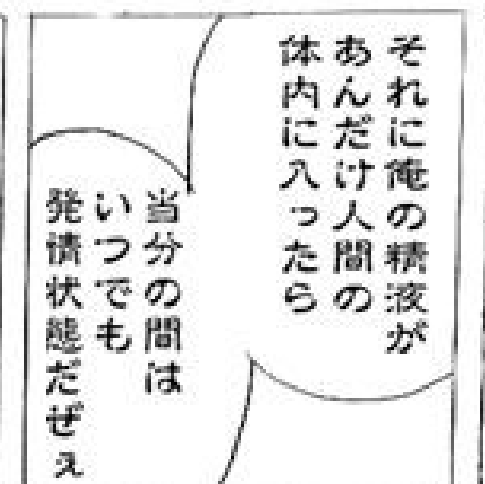 それに俺の精液が
あんだけ人間の
体内に入ったら
当分の間は
いつでも
発情状態だぜぇ